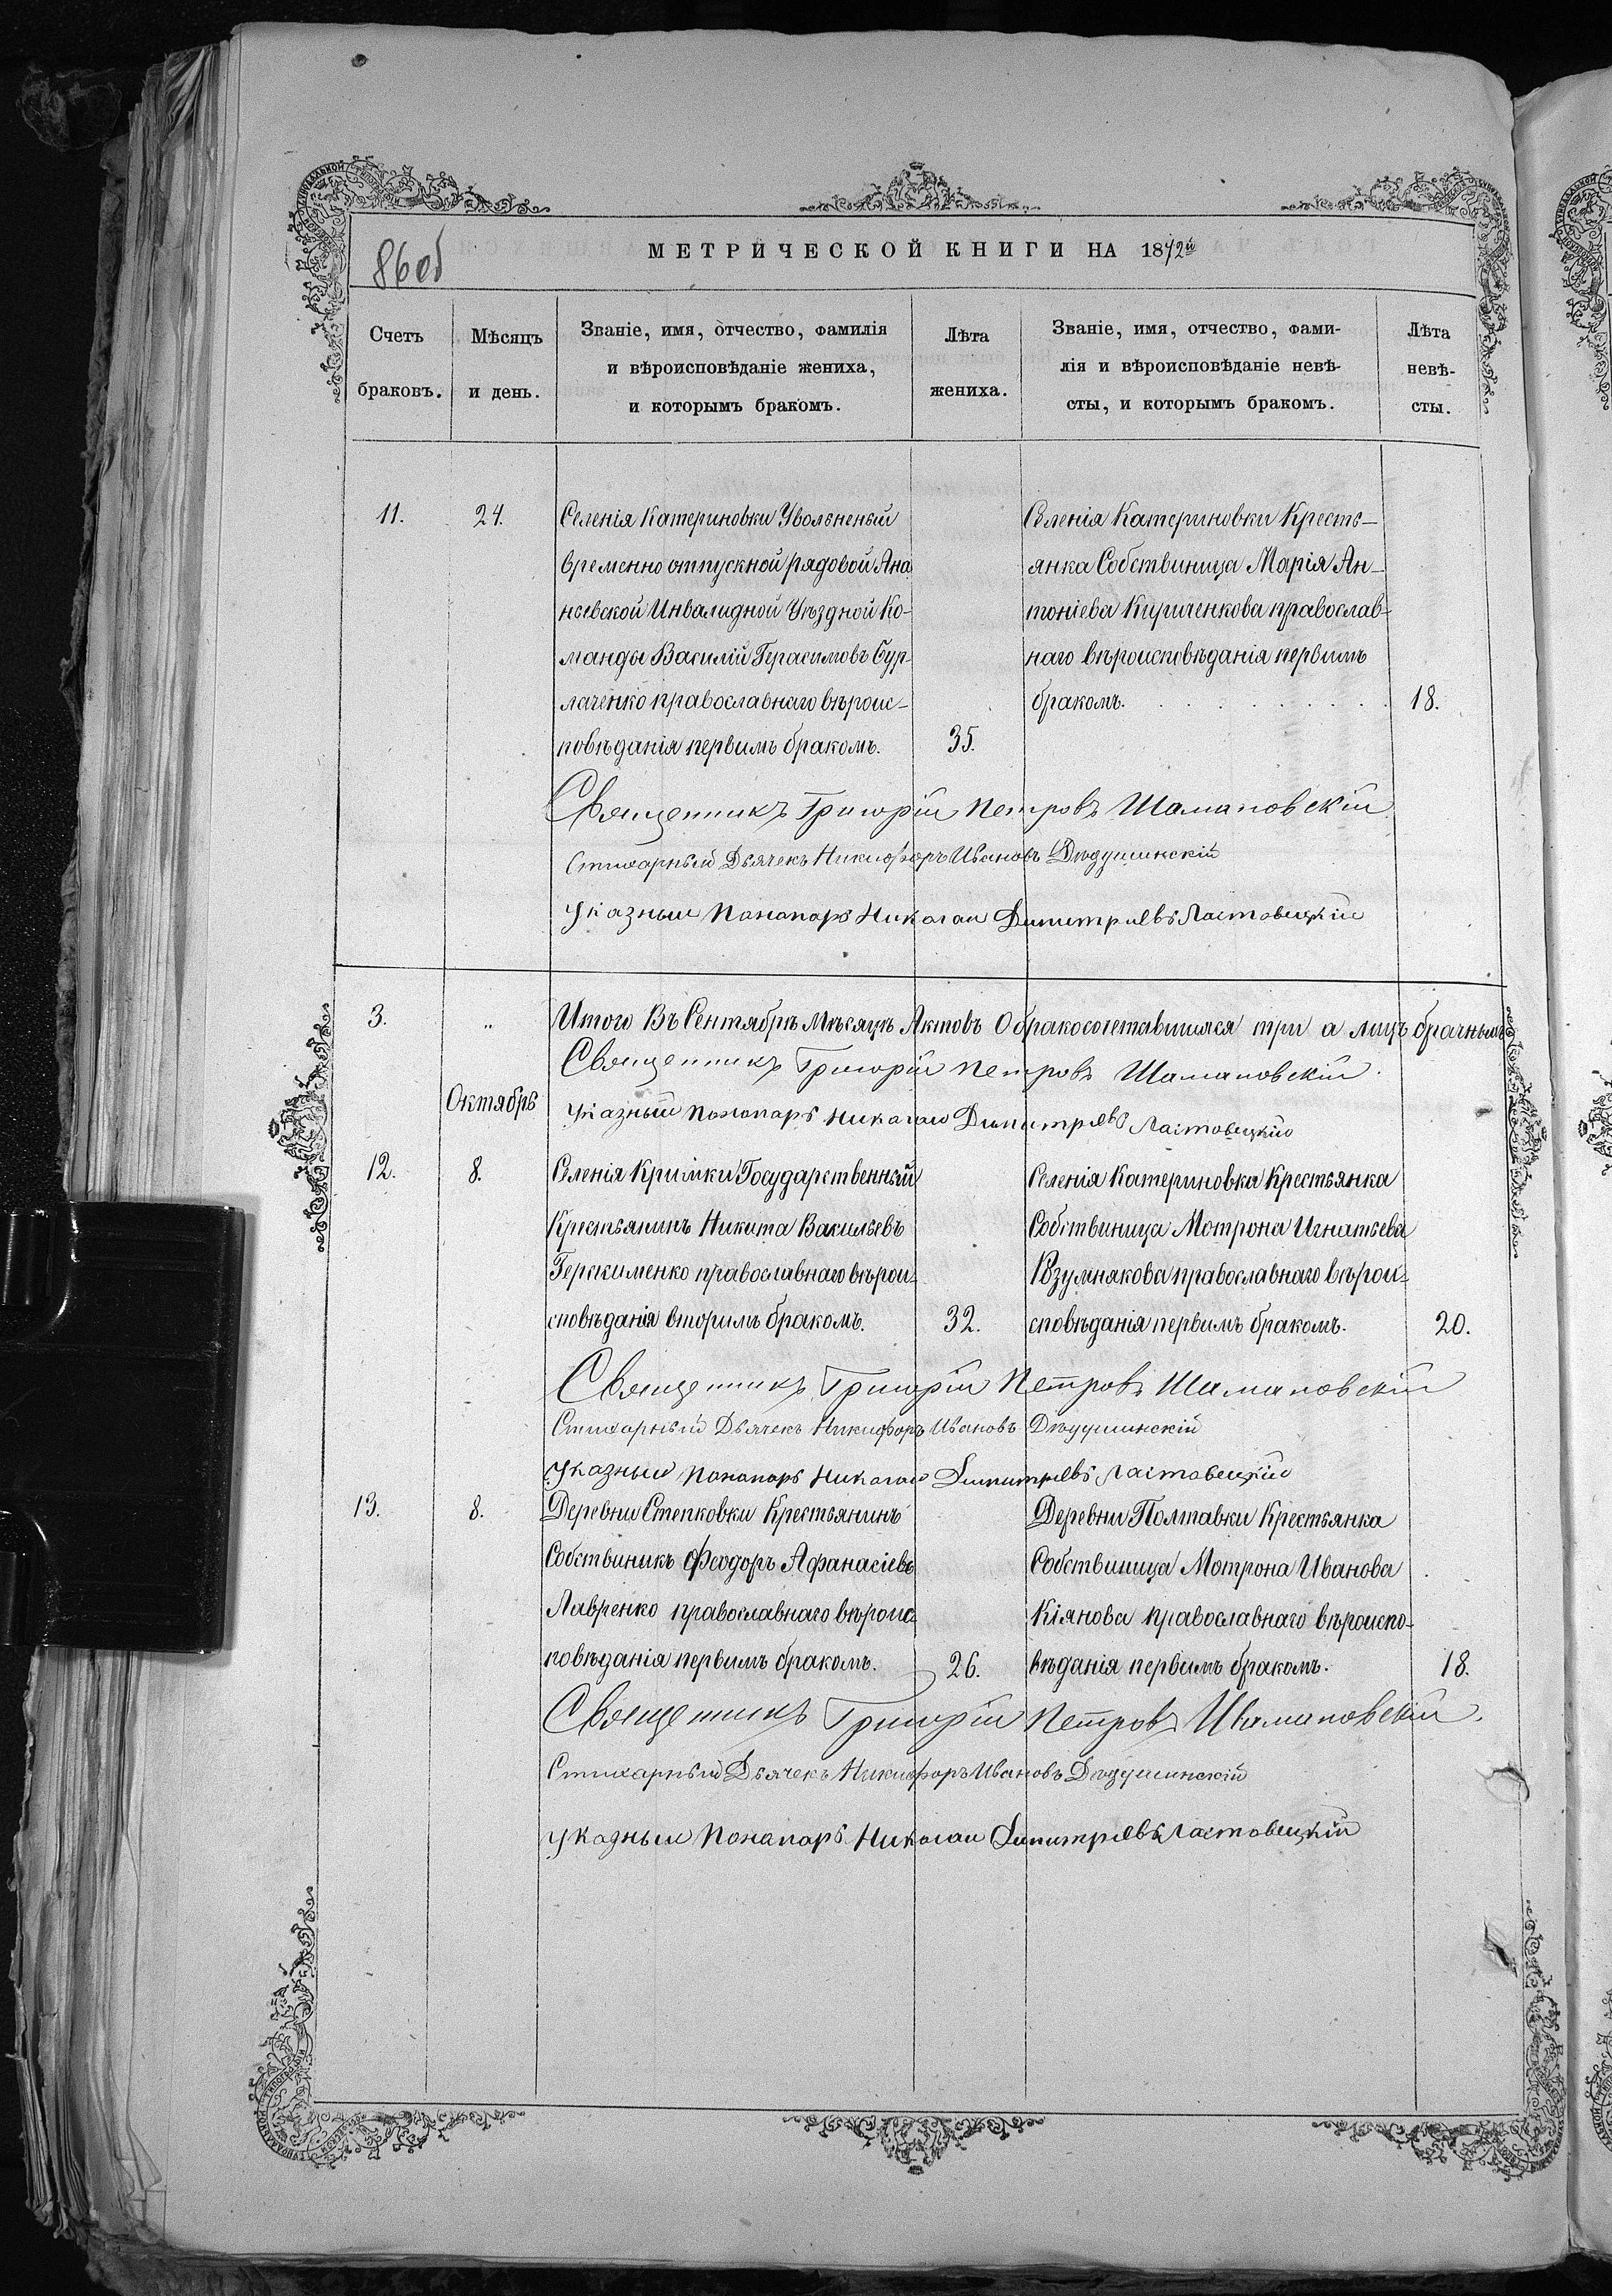 86об
МЕТРИЧЕСКОЙ КНИГИ НА 1872й
Счетъ браковъ.
Мѣсяцъ и день.
Званіе, имя, отчество, фамилія
и вѣроисповѣданіе жениха,
и которымъ бракомъ.
Лѣта жениха.
Званіе, имя, отчество, фами-
лія и вѣроисповѣданіе невѣ-
сты, и которымъ бракомъ.
Лѣта невѣ-
сты.
11. 24.
Селенія Катериновки Уволъненый
временно отпускной рядовой Ана
ньевской Инвалидной Уѣздной Ко-
манды Василій Герасимовъ Бур-
лаченко православнаго вѣроис-
повѣданія первимъ бракомъ. 35.
Селенія Катериновки Кресть-
янка Собствиница Марія Ан-
тоніева Кириченкова православ-
наго вѣроисповѣданія первимъ
бракомъ. 18.
Священникъ Григорій Петровъ Шамановскій
Стихарный Дьячекъ Никифоръ Ивановъ Дѣдушинскій
Указный Пономарь Николай Димитріевъ Ластовецкій
3. „ Итого Въ Сентябрѣ Мѣсяцѣ Актовъ О бракосочетавшихся три а лицъ брачныхъ
Священникъ Григорій Петровъ Шамановскій.
Октябрь
Указный Пономарь Николай Димитріевъ Ластовецкій
12. 8.
Селенія Кримки Государственный
Крестьянинъ Никита Васильевъ
Герасименко православнаго вѣрои-
сповѣданія вторимъ бракомъ. 32.
Селенія Катериновка Крестьянка
Собствиница Мотрона Игнатьева
православнаго вѣрои-
сповѣданія первимъ бракомъ. 20.
Священникъ Григорій Петровъ Шамановскій
Стихарный Дьячекъ Никифоръ Ивановъ Дѣдушинскій
Указный Пономарь Николай Димитріевъ Ластовецкій
13. 8.
Деревни Степковки Крестьянинъ
Собствиникъ Феодоръ Афанасіевъ
Лавренко православнаго вѣроис
повѣданія первимъ бракомъ. 26.
Деревни Полтавки Крестьянка
Собствиница Мотрона Иванова
Кіянова православнаго вѣроиспо-
вѣданія первимъ бракомъ. 18.
Священникъ Григорій Петровъ Шамановскій.
Стихарный Дьячекъ Никифоръ Ивановъ Дѣдушинскій
Указный Пономарь Николай Димитріевъ Ластовецкій